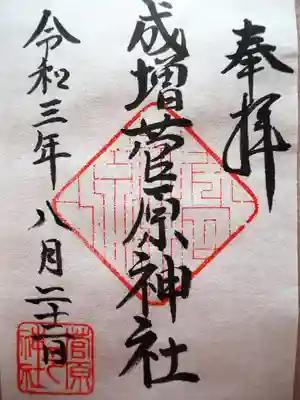 奉拝
成増菅原神社
令和三年八月二十一日
菅原神社